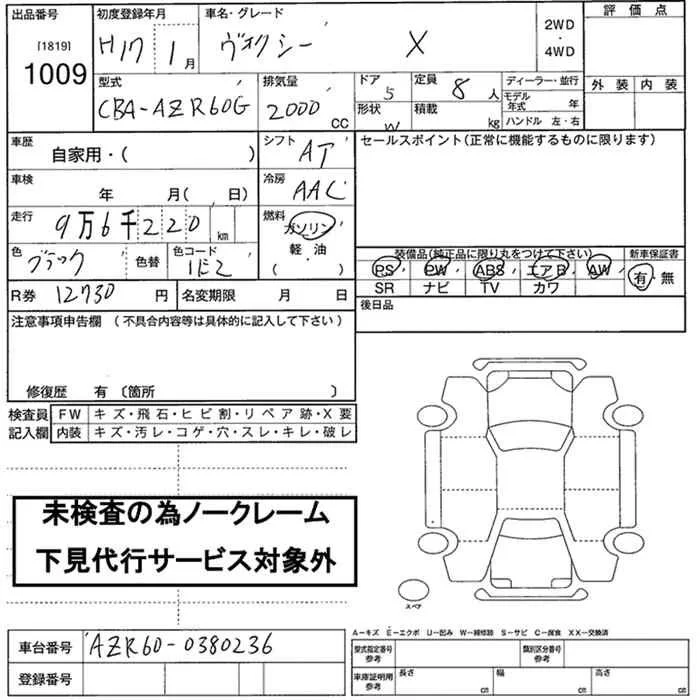 出品番号 初度登録年月 車名・グレード 2WD・4WD 評価点
[1819] 1009 H17 1月 ヴォクシー X
型式 排気量 ドア 5 定員 8人 ディーラー・並行 外装 内装
CBA-AZR60G 2000cc 形状 W 積載 kg モデル年式 年
ハンドル 左・右
車歴 シフト セールスポイント(正常に機能するものに限ります)
自家用・( ) AT
車検 冷房
年 月( 日) AAC
走行 燃料
9万6千220km ガソリン
色 色替 色コード 軽・油
ブラック ( ・ )
装備品(純正品に限り丸をつけて下さい) 新車保証書
PS PW ABS エアB AW 有・無
SR ナビ TV カワ
R券 12730円 名変期限 月 日 後日品
注意事項申告欄 (不具合内容等は具体的に記入して下さい)
修復歴 有 〔箇所 〕
検査員 FW キズ・飛石・ヒビ割・リペア跡・X要
記入欄 内装 キズ・汚レ・コゲ・穴・スレ・キレ・破レ
未検査の為ノークレーム
下見代行サービス対象外
スペア
A―キズ E―エクボ U―凹み W―補修跡 S―サビ C―腐食 XX―交換済
車台番号 AZR60-0380236 型式指定番号 参考 類別区分番号 参考
登録番号 車庫証明用 参考 長さ cm 幅 cm 高さ cm